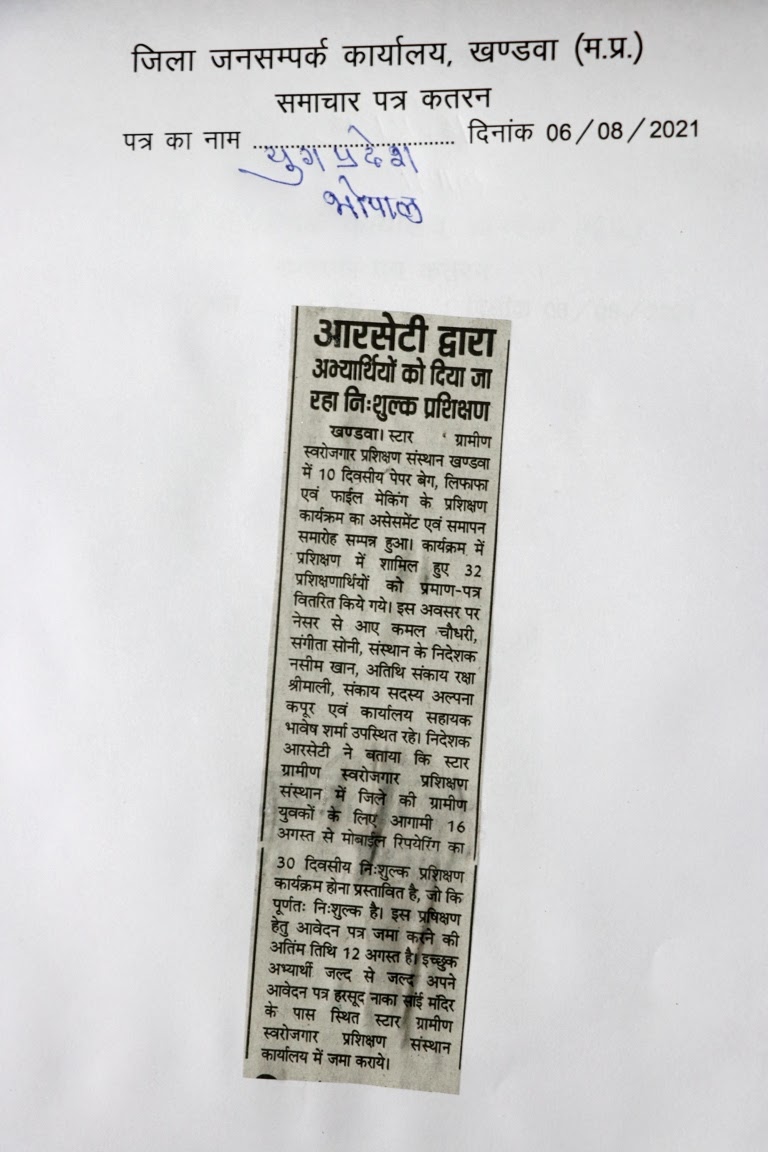 जिला जनसम्पर्क कार्यालय, खण्डवा (म.प्र.)
समाचार पत्र कतरन
पत्र का नाम .................................... दिनांक 06/08/2021
युगप्रदेश
भोपाल
आरसेटी द्वारा
अभ्यार्थियों को दिया जा
रहा निःशुल्क प्रशिक्षण
खण्डवा। स्टार ग्रामीण
स्वरोजगार प्रशिक्षण संस्थान खण्डवा
में 10 दिवसीय पेपर बेग, लिफाफा
एवं फाईल मेकिंग के प्रशिक्षण
कार्यक्रम का असेसमेंट एवं समापन
समारोह सम्पन्न हुआ। कार्यक्रम में
प्रशिक्षण में शामिल हुए 32
प्रशिक्षणार्थियों को प्रमाण-पत्र
वितरित किये गये। इस अवसर पर
नेसर से आए कमल चौधरी,
संगीता सोनी, संस्थान के निदेशक
नसीम खान, अतिथि संकाय रक्षा
श्रीमाली, संकाय सदस्य अल्पना
कपूर एवं कार्यालय सहायक
भावेष शर्मा उपस्थित रहे। निदेशक
आरसेटी ने बताया कि स्टार
ग्रामीण स्वरोजगार प्रशिक्षण
संस्थान में जिले की ग्रामीण
युवकों के लिए आगामी 16
अगस्त से मोबाईल रिपयेरिंग का
30 दिवसीय निःशुल्क प्रशिक्षण
कार्यक्रम होना प्रस्तावित है, जो कि
पूर्णतः निःशुल्क है। इस प्रषिक्षण
हेतु आवेदन पत्र जमा करने की
अतिंम तिथि 12 अगस्त है। इच्छुक
अभ्यार्थी जल्द से जल्द अपने
आवेदन पत्र हरसूद नाका सांई मंदिर
के पास स्थित स्टार ग्रामीण
स्वरोजगार प्रशिक्षण संस्थान
कार्यालय में जमा कराये।